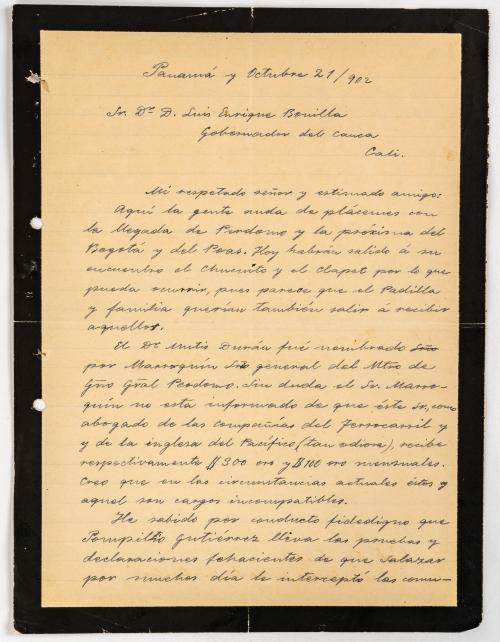 Panamá y Octubre 21/902
Sr. Dr. D. Luis Enrique Bonilla
Gobernador del Cauca
Cali.
Mi respetado señor y estimado amigo:
Aquí la gente anda de plácemes con
la llegada de Perdomo y la próxima del
Bogotá y del Poas. Hoy habrán salido á su
encuentro el Chucuito y el Clapet por lo que
pueda ocurrir, pues parece que el Padilla
y familia querían también salir á recibir
aquellos.
El Dr. Mutis Durán fué nombrado Srio
por Marroquín Srio general del Mtro de
Gno Gral Perdomo. Sin duda el Sr. Marro-
quín no esta informado de que éste Sr, como
abogado de las compañias del Ferrocarril y
y de la inglesa del Pacífico, (tan odiosa), recibe
respectivamente $300 oro y $100 oro mensuales.
Creo que en las circunstancias actuales éstos y
aquel son cargos incompatibles.
He sabido por conducto fidedigno que
Pompilio Gutiérrez lleva las pruebas y
declaraciones fehacientes de que Salazar
por muchos día le interceptó las comu-